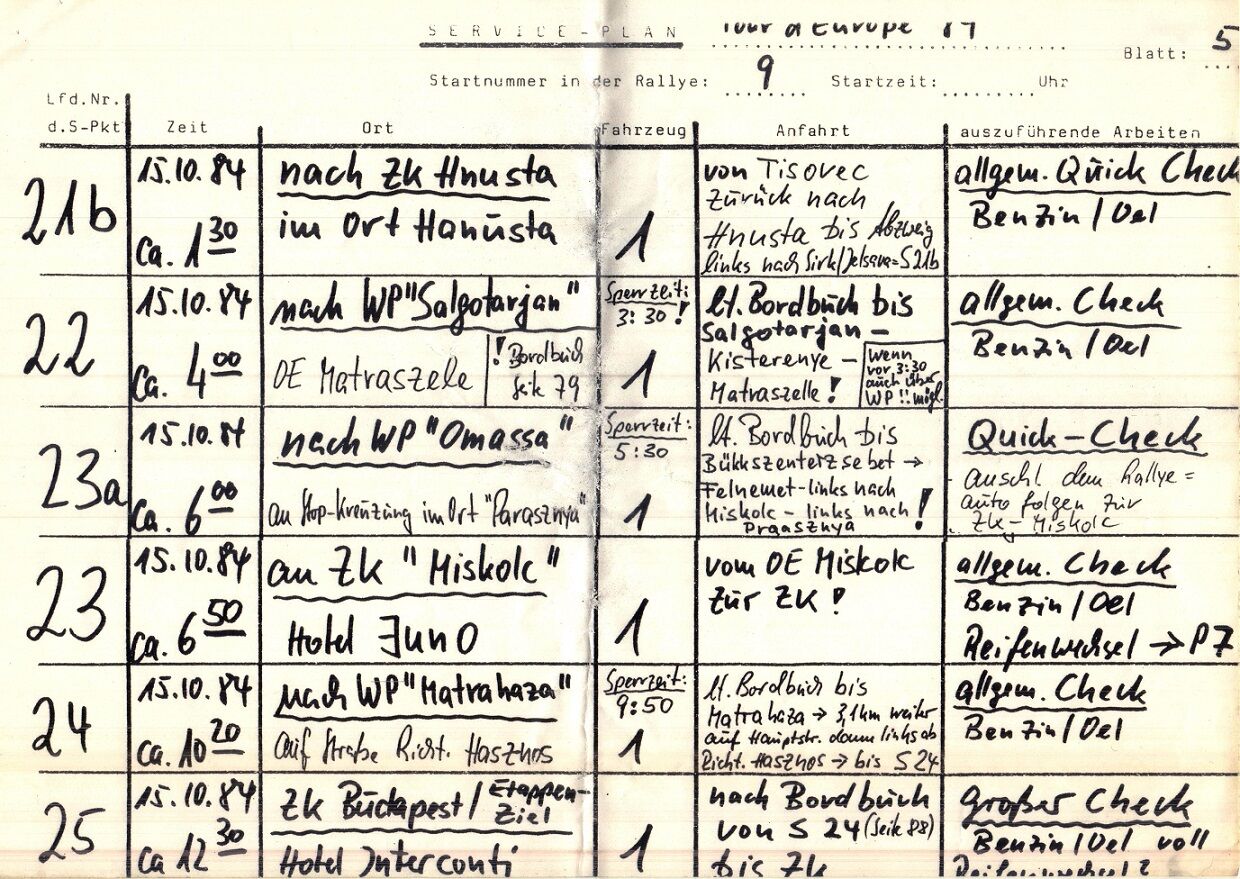 SERVICE-PLAN Tour d'Europe 84
Blatt: 5
Startnummer in der Rallye: 9 Startzeit: Uhr
Lfd.Nr.
d.S-Pkt Zeit Ort Fahrzeug Anfahrt auszuführende Arbeiten
21b
15.10.84
ca. 1 30
nach ZK Hnusta
im Ort Hanusta
1
von Tisovec
zurück nach
Hnusta bis Abzweig
links nach Sirk/Jelsava=S21b
allgem. Quick Check
Benzin/Oel
22
15.10.84
ca. 4 00
nach WP "Salgotarjan"
OE Matraszele
! Bordbuch
Seite 79
Sperrzeit:
3:30!
1
lt. Bordbuch bis
Salgotarjan -
Kisterenye -
Matraszelle!
wenn
vor 3:30
auch über
WP !! mögl.
allgem. Check
Benzin/Oel
23a
15.10.84
ca. 6 00
nach WP "Omassa"
an Stop-Kreuzung im Ort "Parasznya"
Sperrzeit:
5:30
1
lt. Bordbuch bis
Bükkszenterzsebet →
Felnemet-links nach
Miskolc - links nach!
Praasznya
Quick-Check
anschl. dem Rallye=
auto folgen zur
ZK-Miskolc
23
15.10.84
ca. 6 50
an ZK "Miskolc"
Hotel Juno
1
vom OE Miskolc
zur ZK!
allgem. Check
Benzin/Oel
Reifenwechsel → P7
24
15.10.84
ca. 10 20
nach WP "Matrahaza"
auf Straße Richt. Hasznos
Sperrzeit:
9:50
1
lt. Bordbuch bis
Matrahaza → 3,1km weiter
auf Hauptstr. dann links ab
Richt. Hasznos → bis S24
allgem. Check
Benzin/Oel
25
15.10.84
ca 12 30
ZK Budapest/Etappen-
Ziel
Hotel Interconti
1
nach Bordbuch
von S 24 (Seite 88)
bis ZK
großer Check
Benzin/Oel voll
Reifenwechsel?